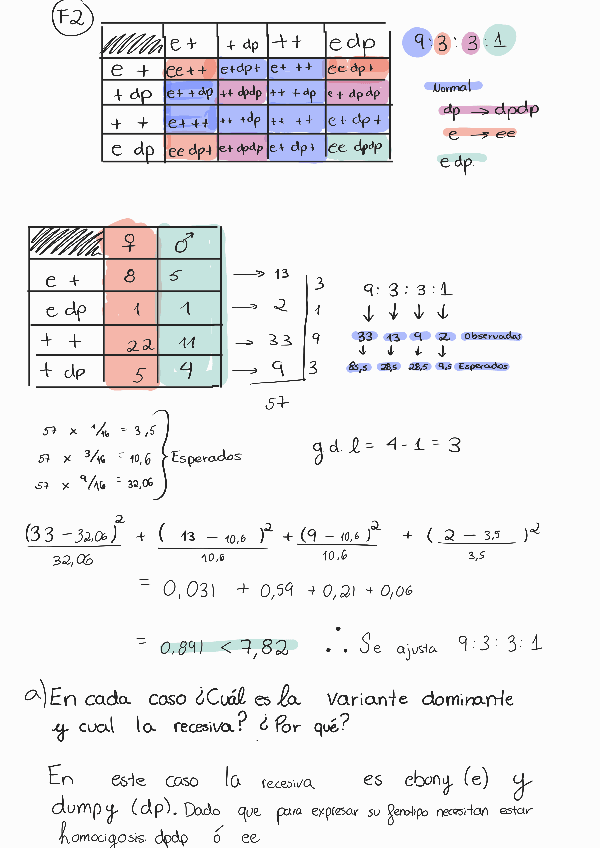 F2
e + + dp + + e dp 9 : 3 : 3 : 1
e + ee++ e+dp+ e+ ++ ee dp+
+ dp e+ +dp ++ dpdp ++ + dp e+ dpdp
+ + e+ ++ ++ +dp ++ ++ e+ dp+
e dp ee dp+ e+ dpdp e+ dp+ ee dpdp
Normal
dp → dpdp
e → ee
e dp.
♀ ♂
e + 8 5 → 13 3
e dp 1 1 → 2 1
+ + 22 11 → 33 9
+ dp 5 4 → 9 3
57
9 : 3 : 3 : 1
↓ ↓ ↓ ↓
33 13 9 2 Observadas
↓ ↓ ↓ ↓
28,5 28,5 9,5 Esperados
57 x 1/16 = 3,5
57 x 3/16 = 10,6
57 x 9/16 = 32,06
Esperados
g d. l = 4 - 1 = 3
(33 - 32,06)² / 32,06 + (13 - 10,6)² / 10,6 + (9 - 10,6)² / 10,6 + (2 - 3,5)² / 3,5
= 0,031 + 0,59 + 0,21 + 0,06
= 0,891 < 7,82 ∴ Se ajusta 9:3:3:1
a) En cada caso ¿Cuál es la variante dominante
y cual la recesiva? ¿Por qué?
En este caso la recesiva es ebony (e) y
dumpy (dp). Dado que para expresar su fenotipo necesitan estar
homocigosis dpdp ó ee